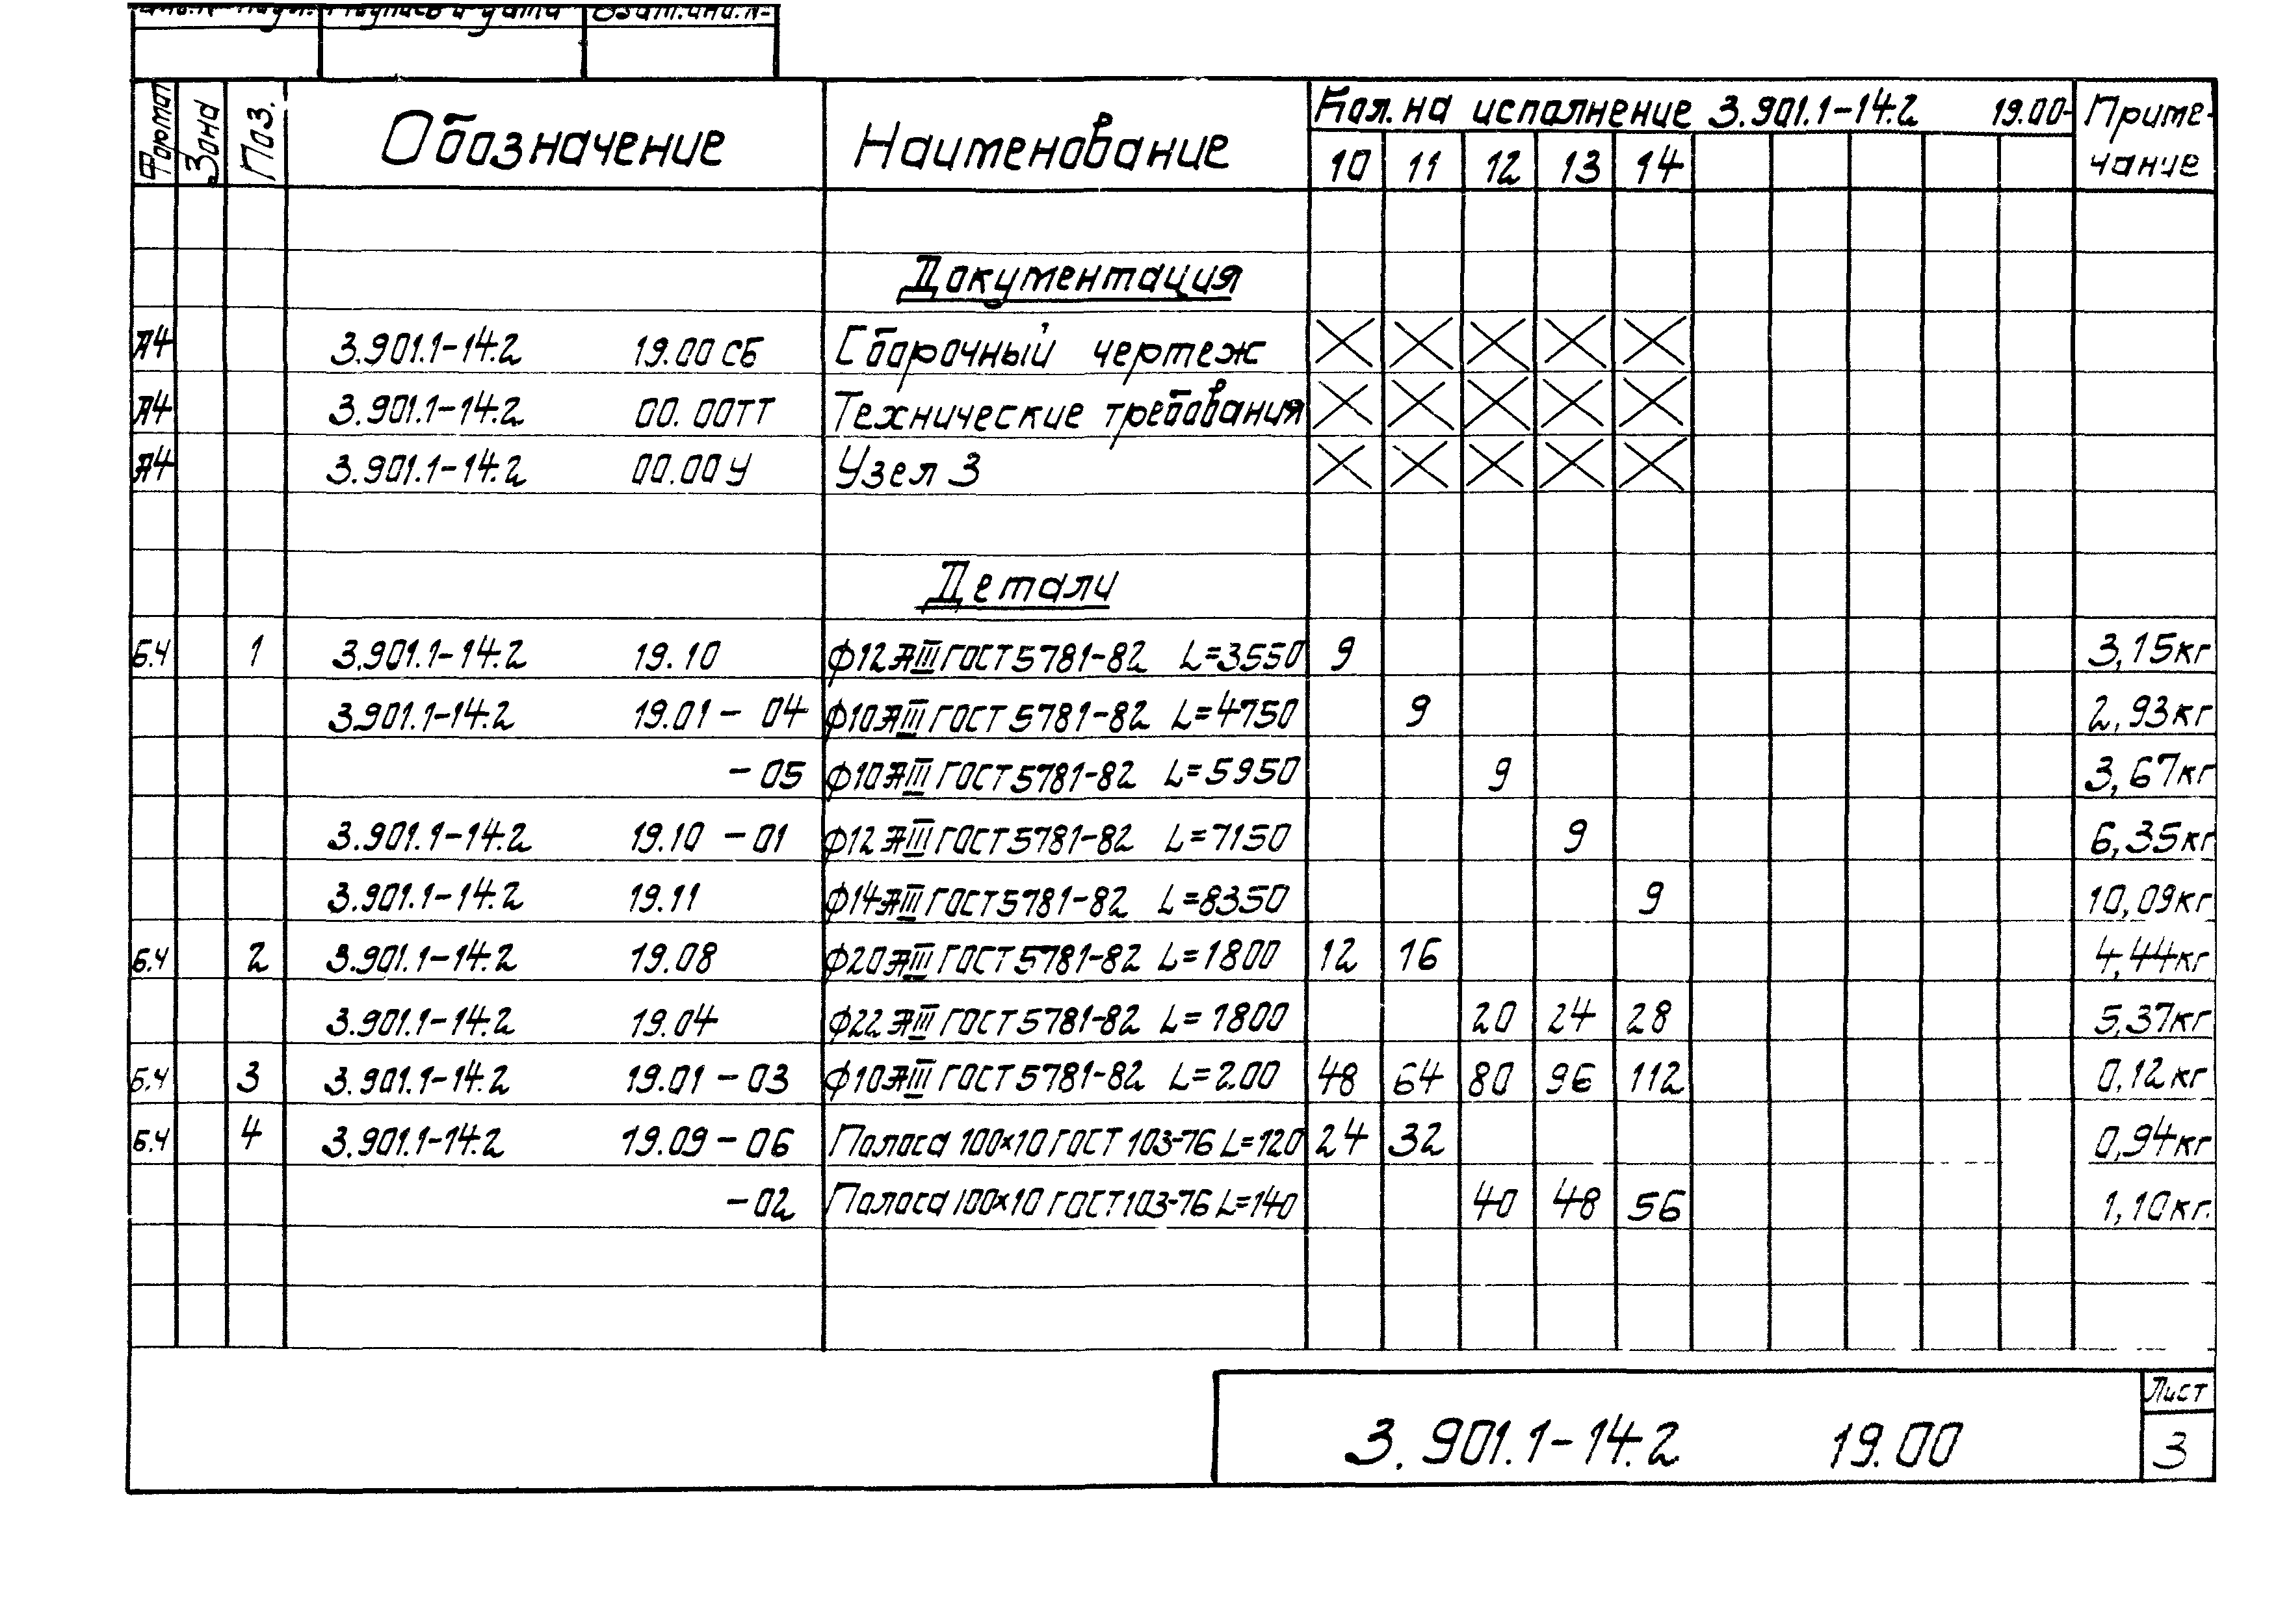 Подпись и дата Взам.инв.№
Формат Зона Поз. Обозначение Наименование Кол. на исполнение 3.901.1-14.2 19.00- Приме-
10 11 12 13 14 чание
Документация
А4 3.901.1-14.2 19.00 СБ Сборочный чертеж
А4 3.901.1-14.2 00.00ТТ Технические требования
А4 3.901.1-14.2 00.00 У Узел 3
Детали
Б.Ч 1 3.901.1-14.2 19.10 ф12АIII ГОСТ 5781-82 L=3550 9 3,15кг
3.901.1-14.2 19.01 - 04 ф10АIII ГОСТ 5781-82 L=4750 9 2,93кг
- 05 ф10АIII ГОСТ 5781-82 L=5950 9 3,67кг
3.901.1-14.2 19.10 - 01 ф12АIII ГОСТ 5781-82 L=7150 9 6,35кг
3.901.1-14.2 19.11 ф14АIII ГОСТ 5781-82 L=8350 9 10,09кг
Б.Ч 2 3.901.1-14.2 19.08 ф20АIII ГОСТ 5781-82 L=1800 12 16 4,44кг
3.901.1-14.2 19.04 ф22АIII ГОСТ 5781-82 L=1800 20 24 28 5,37кг
Б.Ч 3 3.901.1-14.2 19.01 - 03 ф10АIII ГОСТ 5781-82 L=200 48 64 80 96 112 0,12кг
Б.Ч 4 3.901.1-14.2 19.09 - 06 Полоса 100×10 ГОСТ 103-76 L=120 24 32 0,94кг
- 02 Полоса 100×10 ГОСТ 103-76 L=140 40 48 56 1,10кг.
3.901.1-14.2 19.00
Лист
3